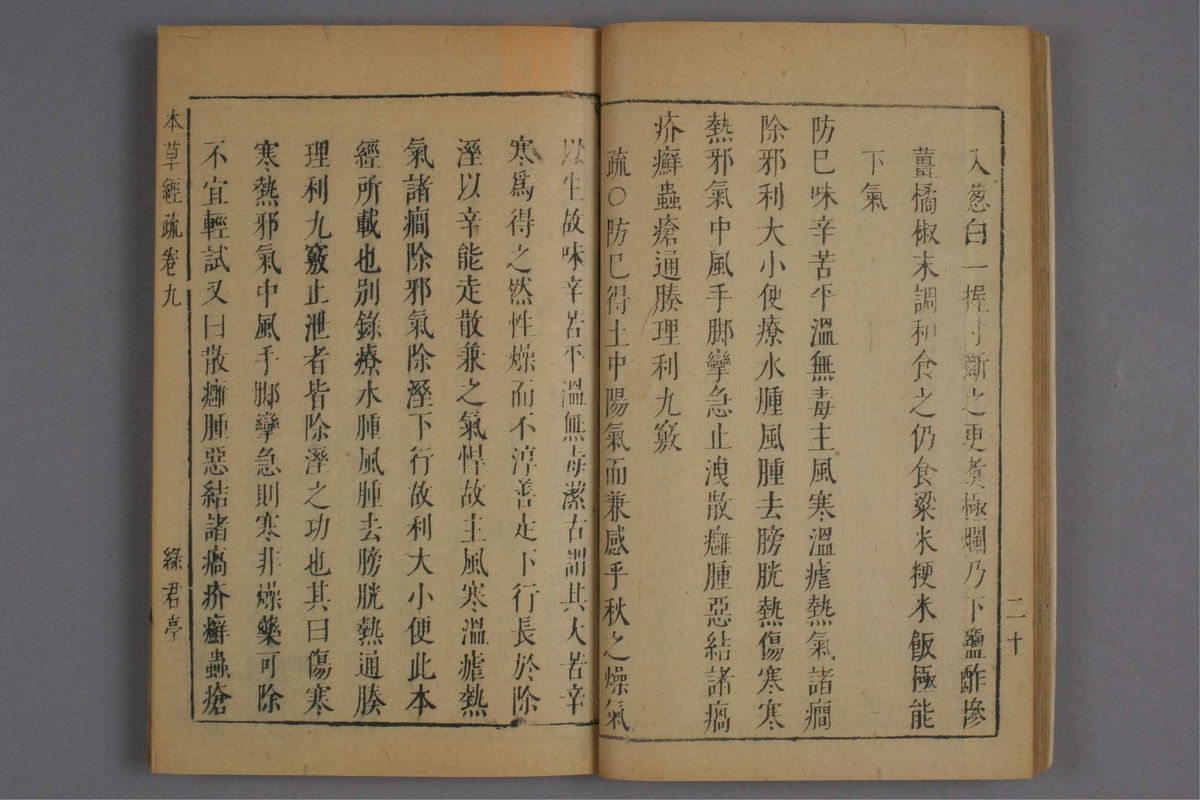 入葱白一握寸斷之更煑極爛乃下鹽酢摻
薑橘椒末調和食之仍食粱米粳米飯極能
下氣
防巳味辛苦平溫無毒主風寒溫瘧熱氣諸癇
除邪利大小便療水腫風腫去膀胱熱傷寒寒
熱邪氣中風手脚攣急止洩散癰腫惡結諸瘑
疥癬蟲瘡通腠理利九竅
疏○防巳得土中陽氣而兼感乎秋之燥氣
二十
以生故味辛苦平溫無毒潔古謂其大苦辛
寒爲得之然性燥而不淳善走下行長於除
溼以辛能走散兼之氣悍故主風寒溫瘧熱
氣諸癇除邪氣除溼下行故利大小便此本
經所載也別錄療水腫風腫去膀胱熱通腠
理利九竅止泄者皆除溼之功也其曰傷寒
寒熱邪氣中風手脚攣急則寒非燥藥可除
不宜輕試又曰散癰腫惡結諸瘑疥癬蟲瘡
本草經疏卷九
綠君亭